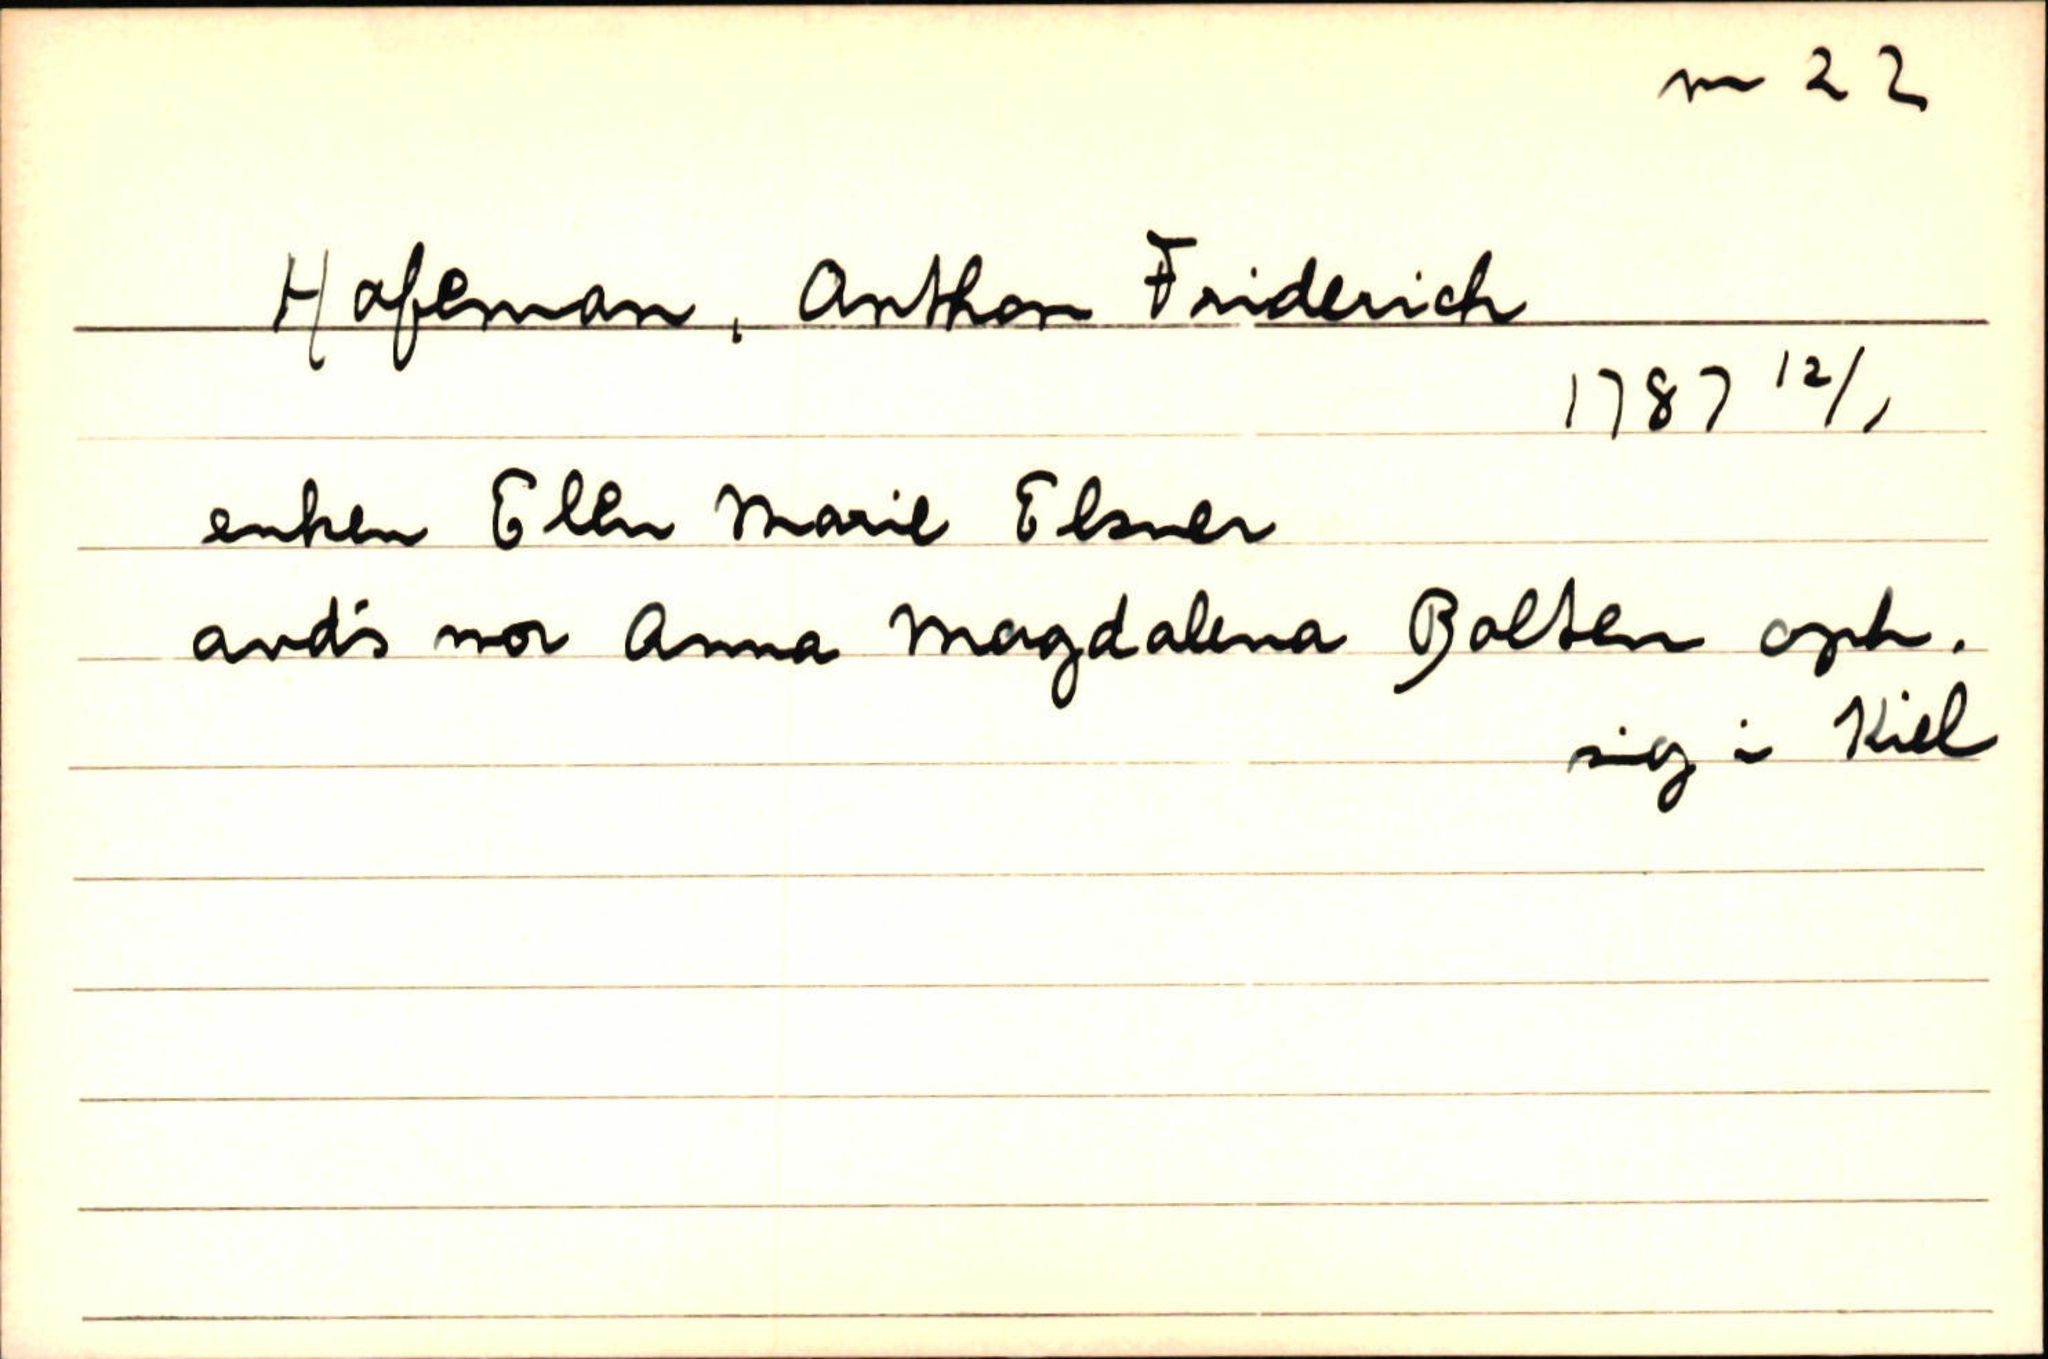 m 22
Hafeman, Anthon Friderich
1787 12/1
enken Ellen Marie Elsner
avd`s mor Anna Magdalena Bolten oph.
sig i Kiel